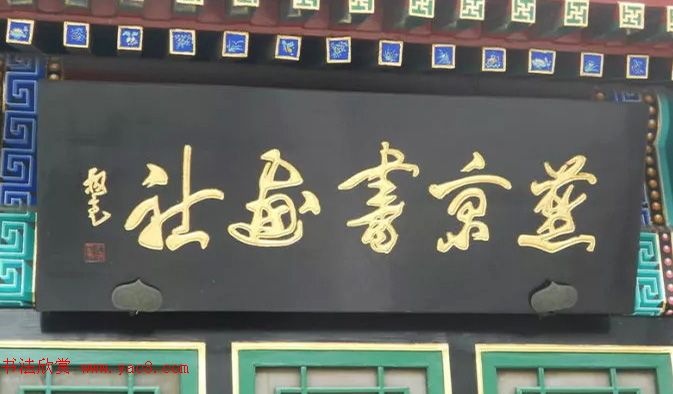 燕京書画社
书法欣赏 www.yac8.com